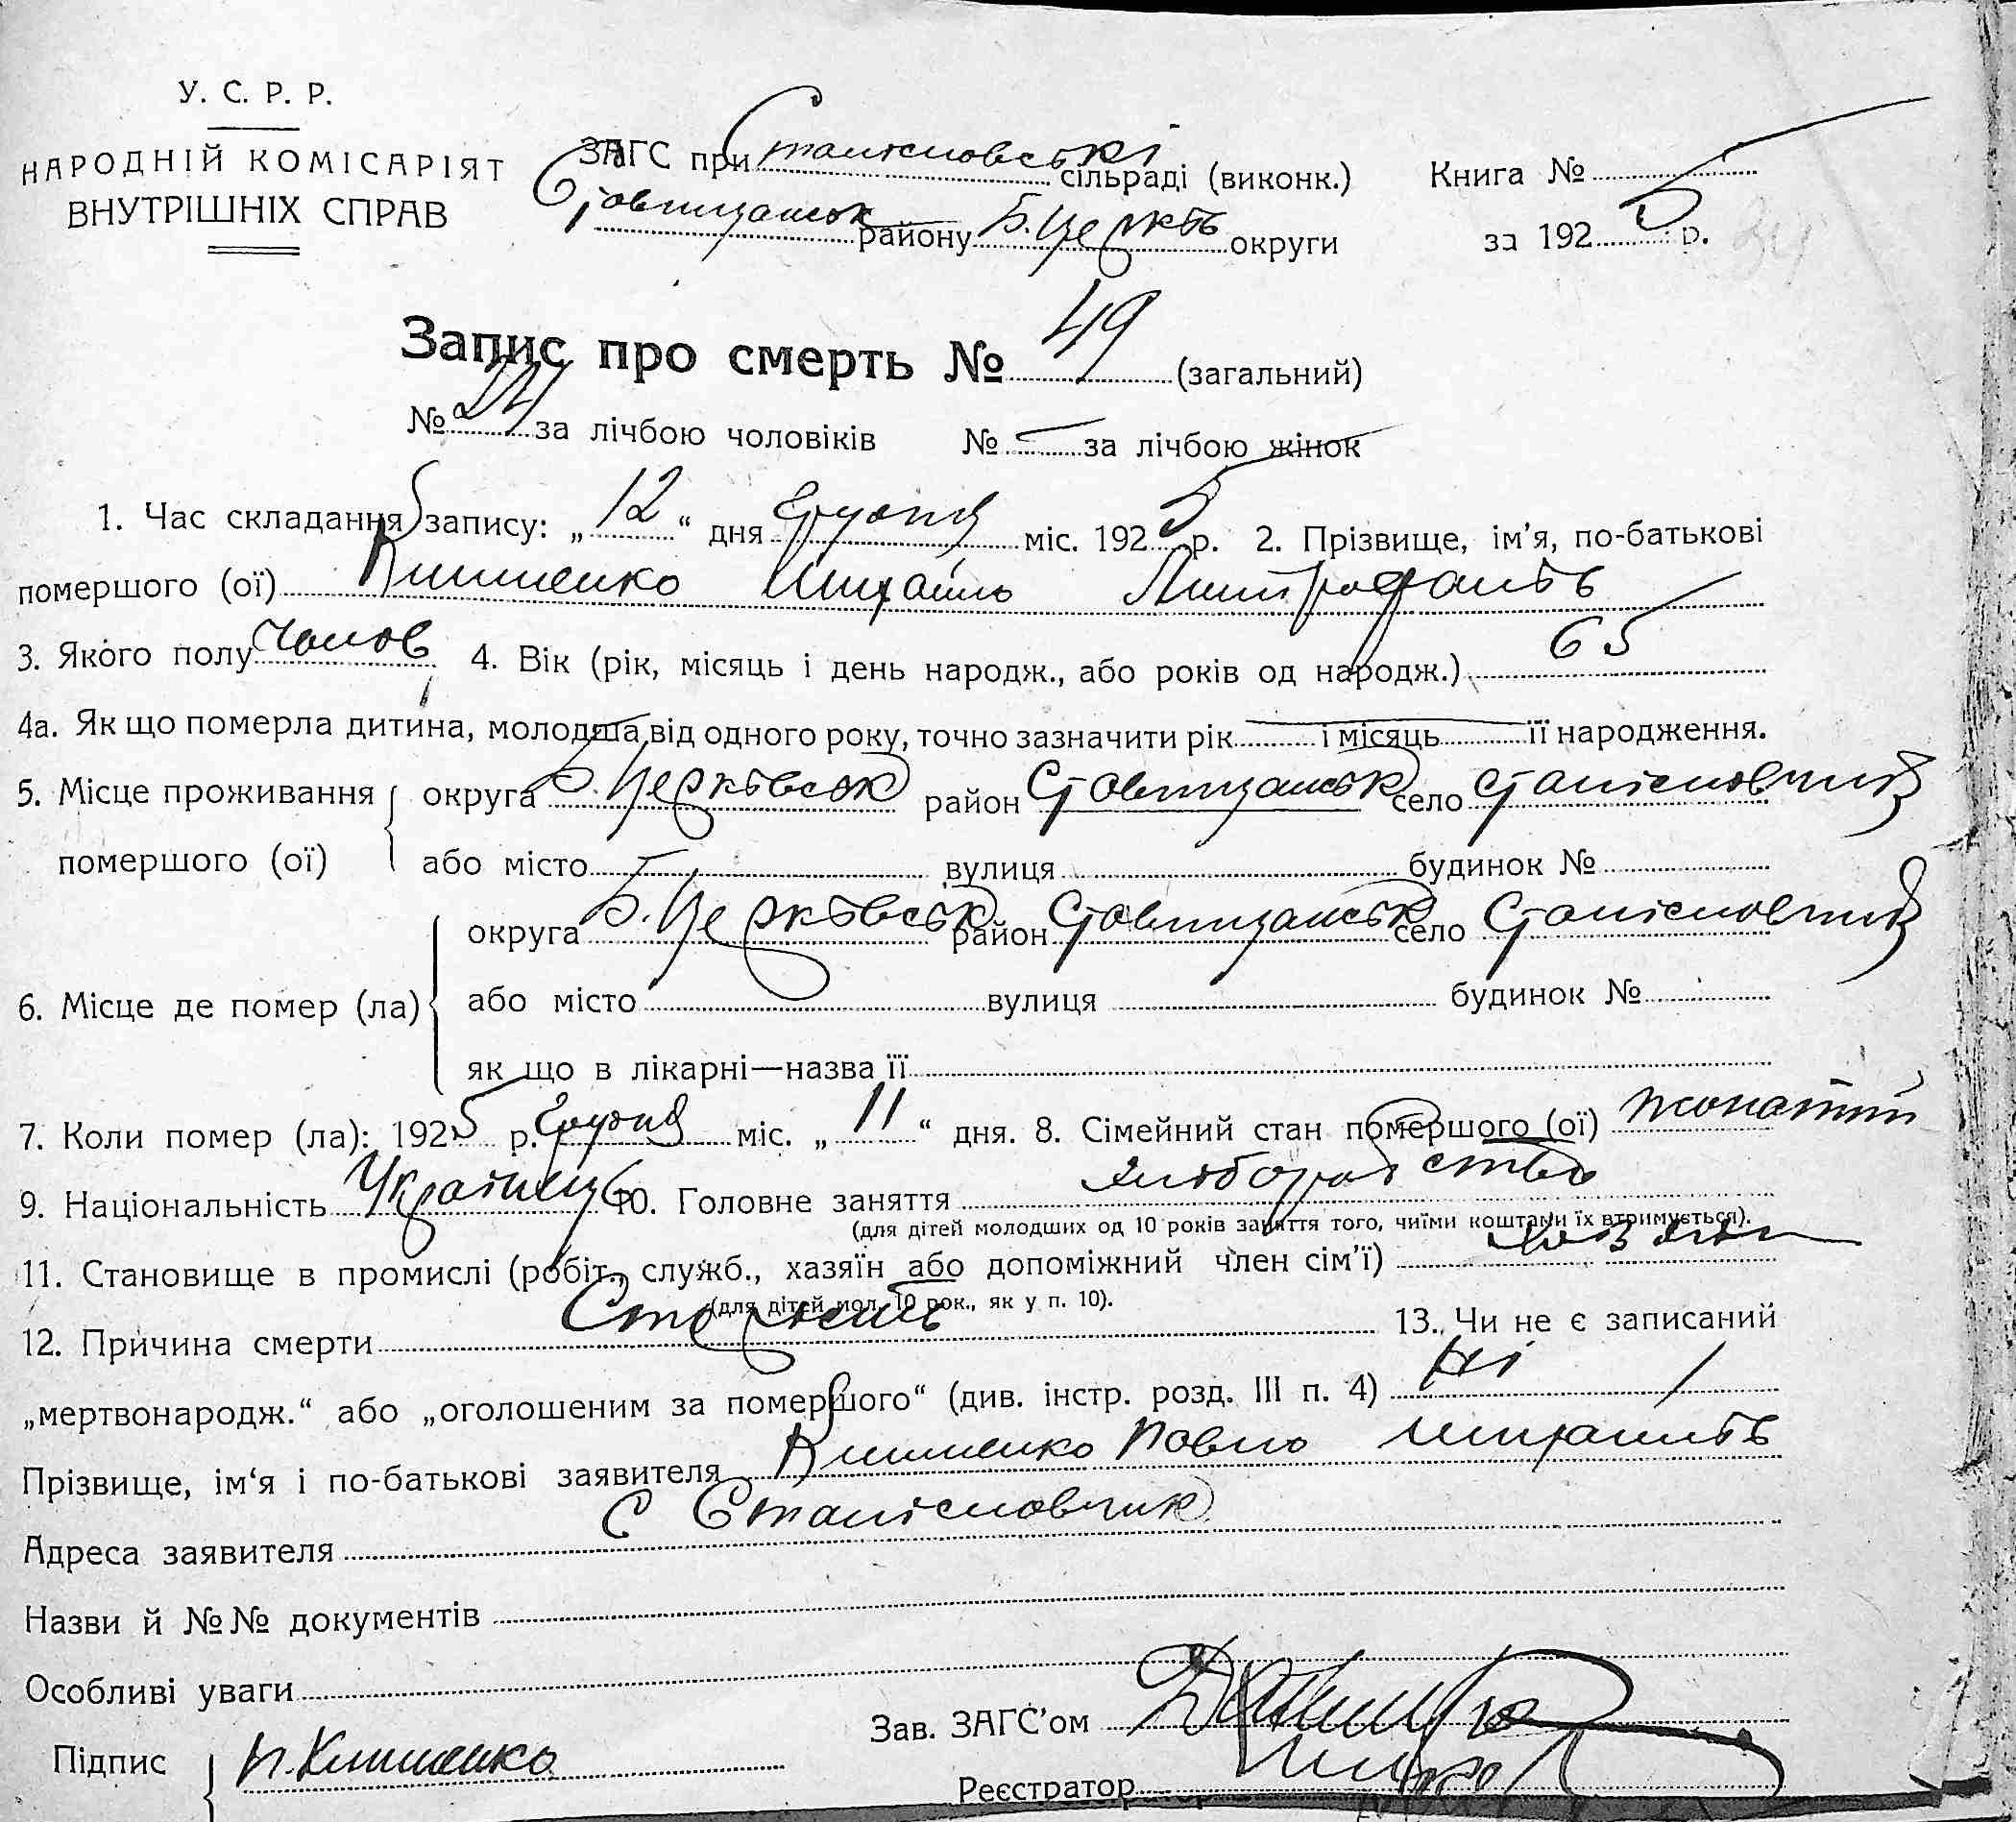 У. С. Р. Р.
НАРОДНІЙ КОМІСАРІЯТ
ВНУТРІШНІХ СПРАВ
ЗАГС при Станісловські сільраді (виконк.)
Ставищанськ району Б. Церків округи
Книга №
за 1925 р.
Запис про смерть № 49 (загальний)
№ 24 за лічбою чоловіків № — за лічбою жінок
1. Час складання запису: „12“ дня Грудня міс. 1925 р. 2. Прізвище, ім’я, по-батькові
помершого (ої) Клименко Михайло Митрофанів
3. Якого полу Чолов 4. Вік (рік, місяць і день народж., або років од народж.) 65
4а. Як що померла дитина, молодша від одного року, точно зазначити рік і місяць її народження.
5. Місце проживання помершого (ої) округа Б. Церківськ район Ставищанськ село Станісловчик
або місто вулиця будинок №
6. Місце де помер (ла) округа Б. Церківськ район Ставищанськ село Станісловчик
або місто вулиця будинок №
як що в лікарні—назва її
7. Коли помер (ла): 1925 р. Грудня міс. „11“ дня. 8. Сімейний стан помершого (ої) жонатий
9. Національність Українець 10. Головне заняття хліборобство
(для дітей молодших од 10 років заняття того, чиїми коштами їх втримується).
11. Становище в промислі (робіт., служб., хазяїн або допоміжний член сім’ї) хозяін
(для дітей мол. 10 рок., як у п. 10).
12. Причина смерти Старість 13. Чи не є записаний
„мертвонародж.“ або „оголошеним за помершого“ (див. інстр. розд. III п. 4) Ні
Прізвище, ім‘я і по-батькові заявителя Клименко Павло Михайлів
Адреса заявителя С Станісловчик
Назви й №№ документів
Особливі уваги
Зав. ЗАГС’ом
Підпис П. Клименко
Реєстратор